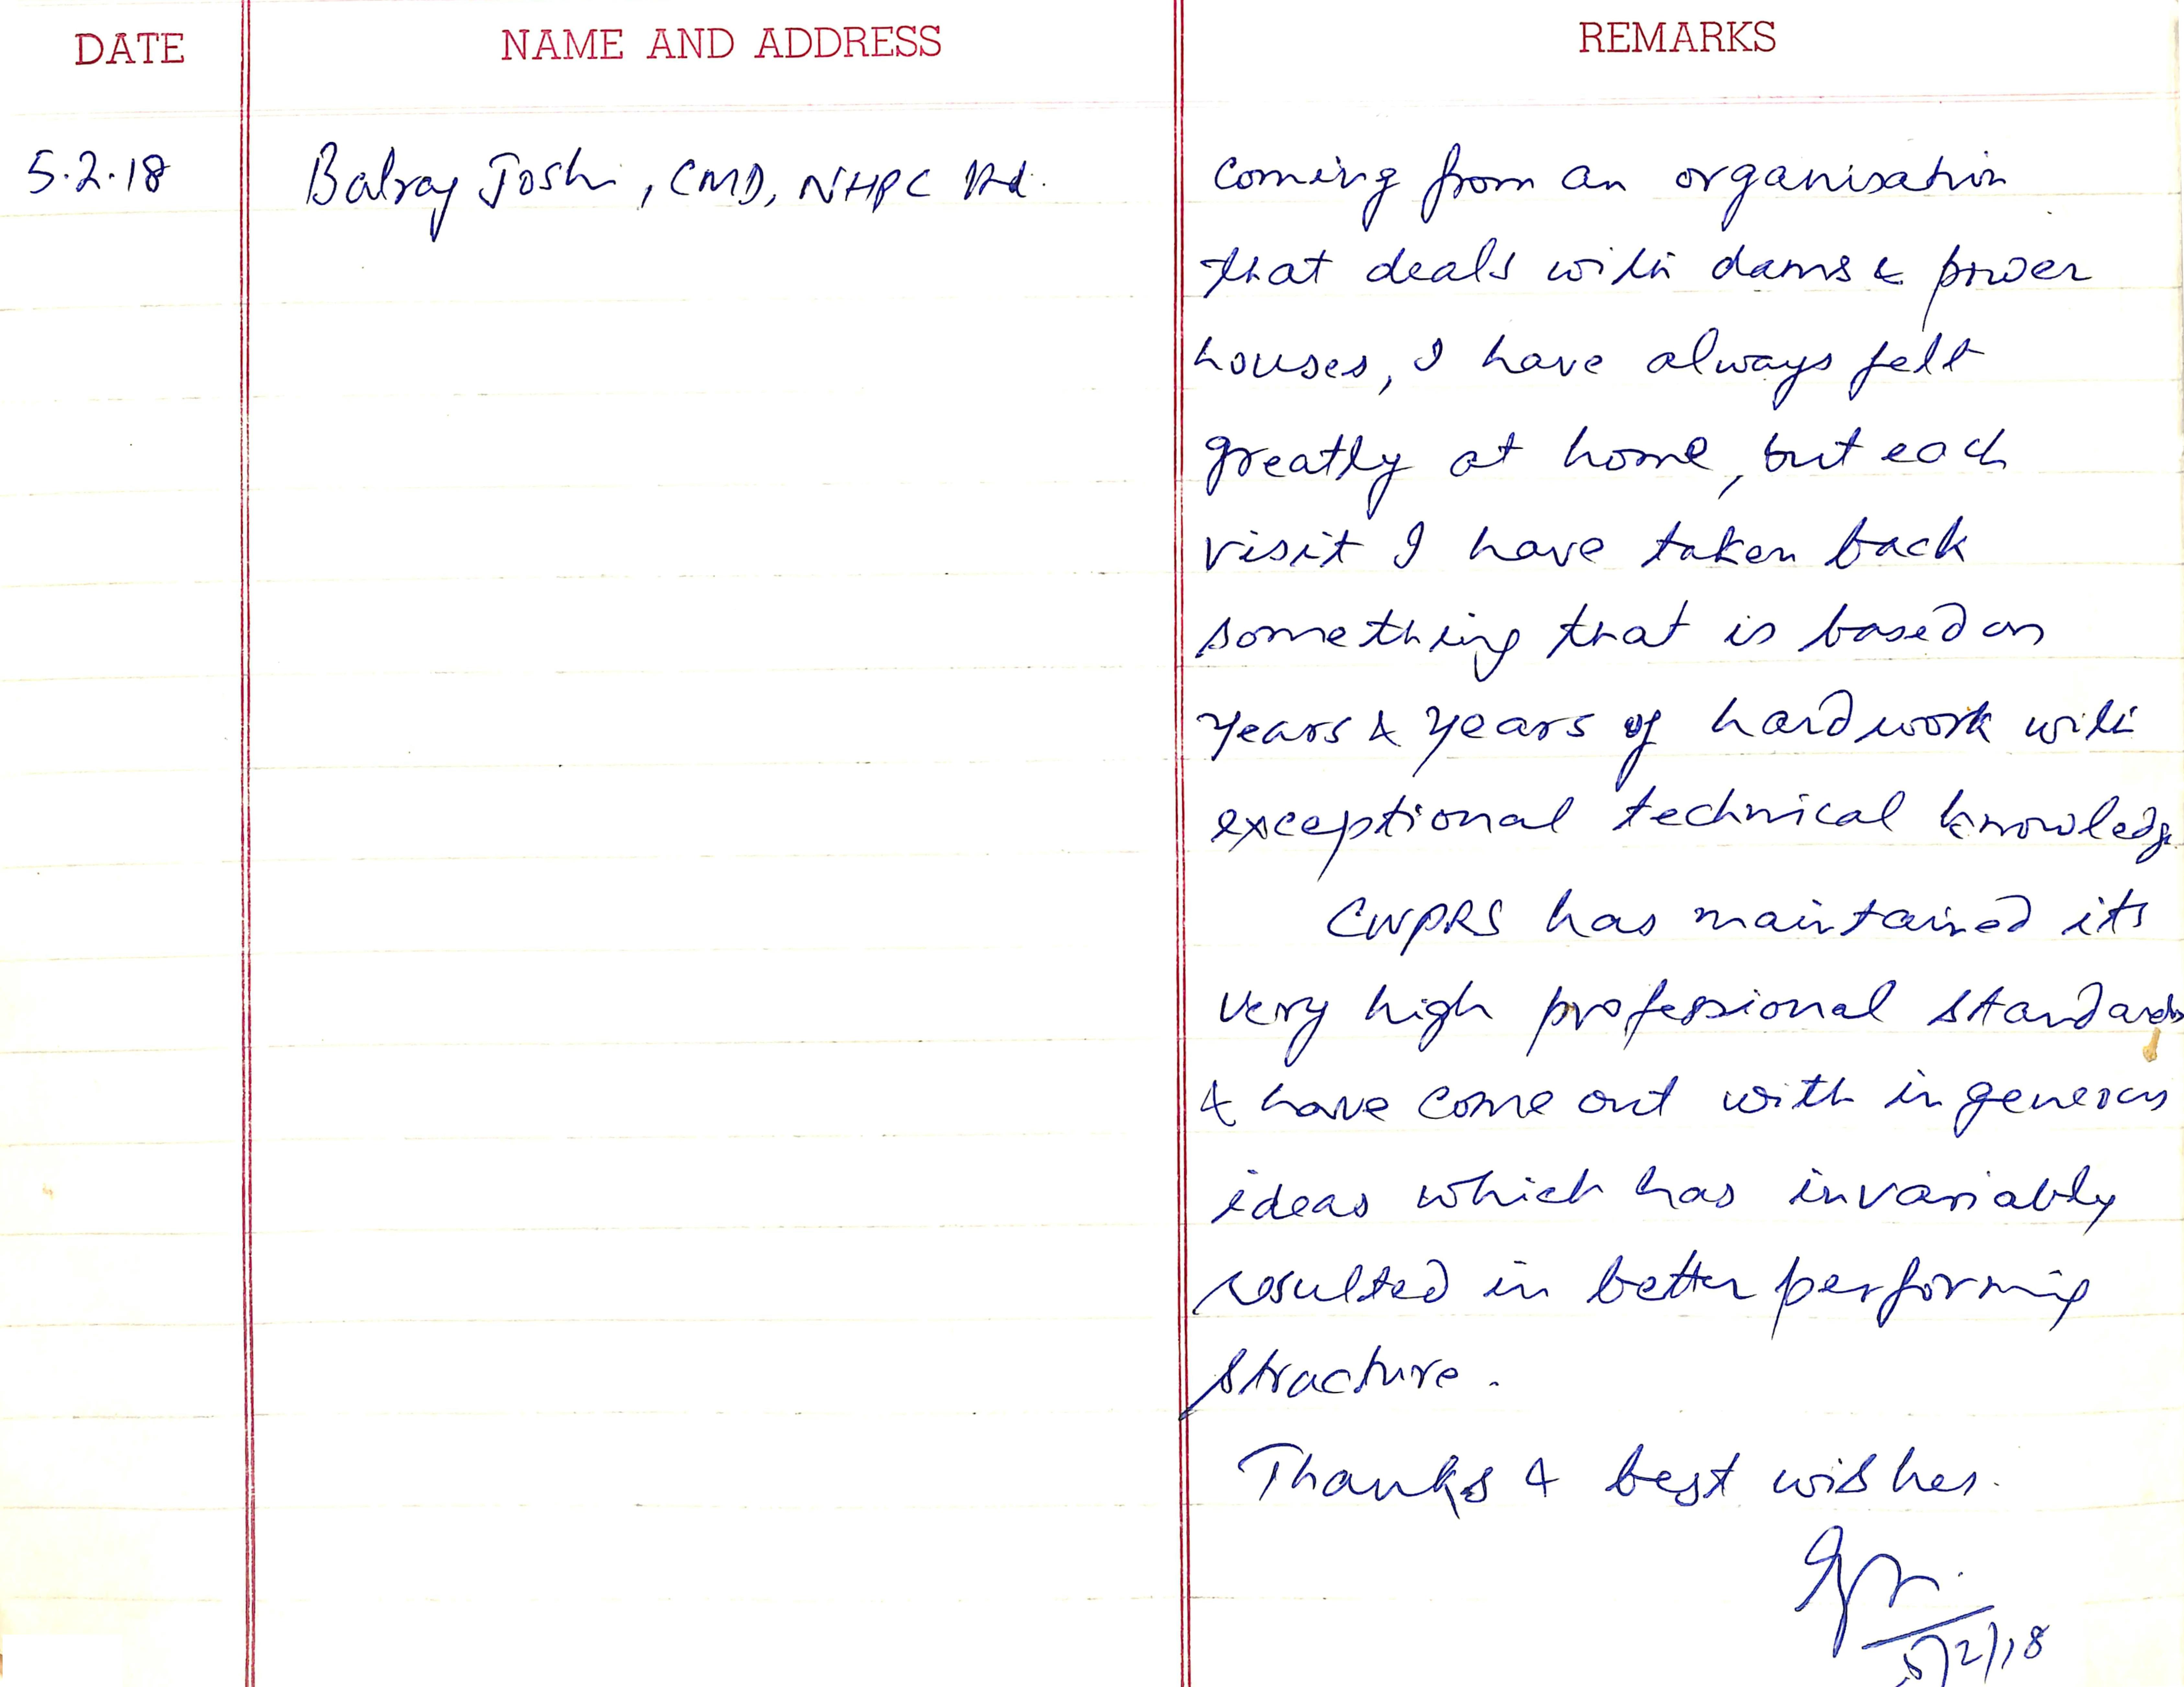 DATE NAME AND ADDRESS REMARKS
5.2.18 Balraj Joshi, CMD, NHPC Ltd.
Coming from an organisation
that deals with dams & power
houses, I have always felt
greatly at home, but each
visit I have taken back
something that is based on
years & years of hard work with
exceptional technical knowledge
CWPRS has maintained its
very high professional standards
& have come out with ingenerous
ideas which has invariably
resulted in better performing
structure.
Thanks & best wishes.
5/2/18